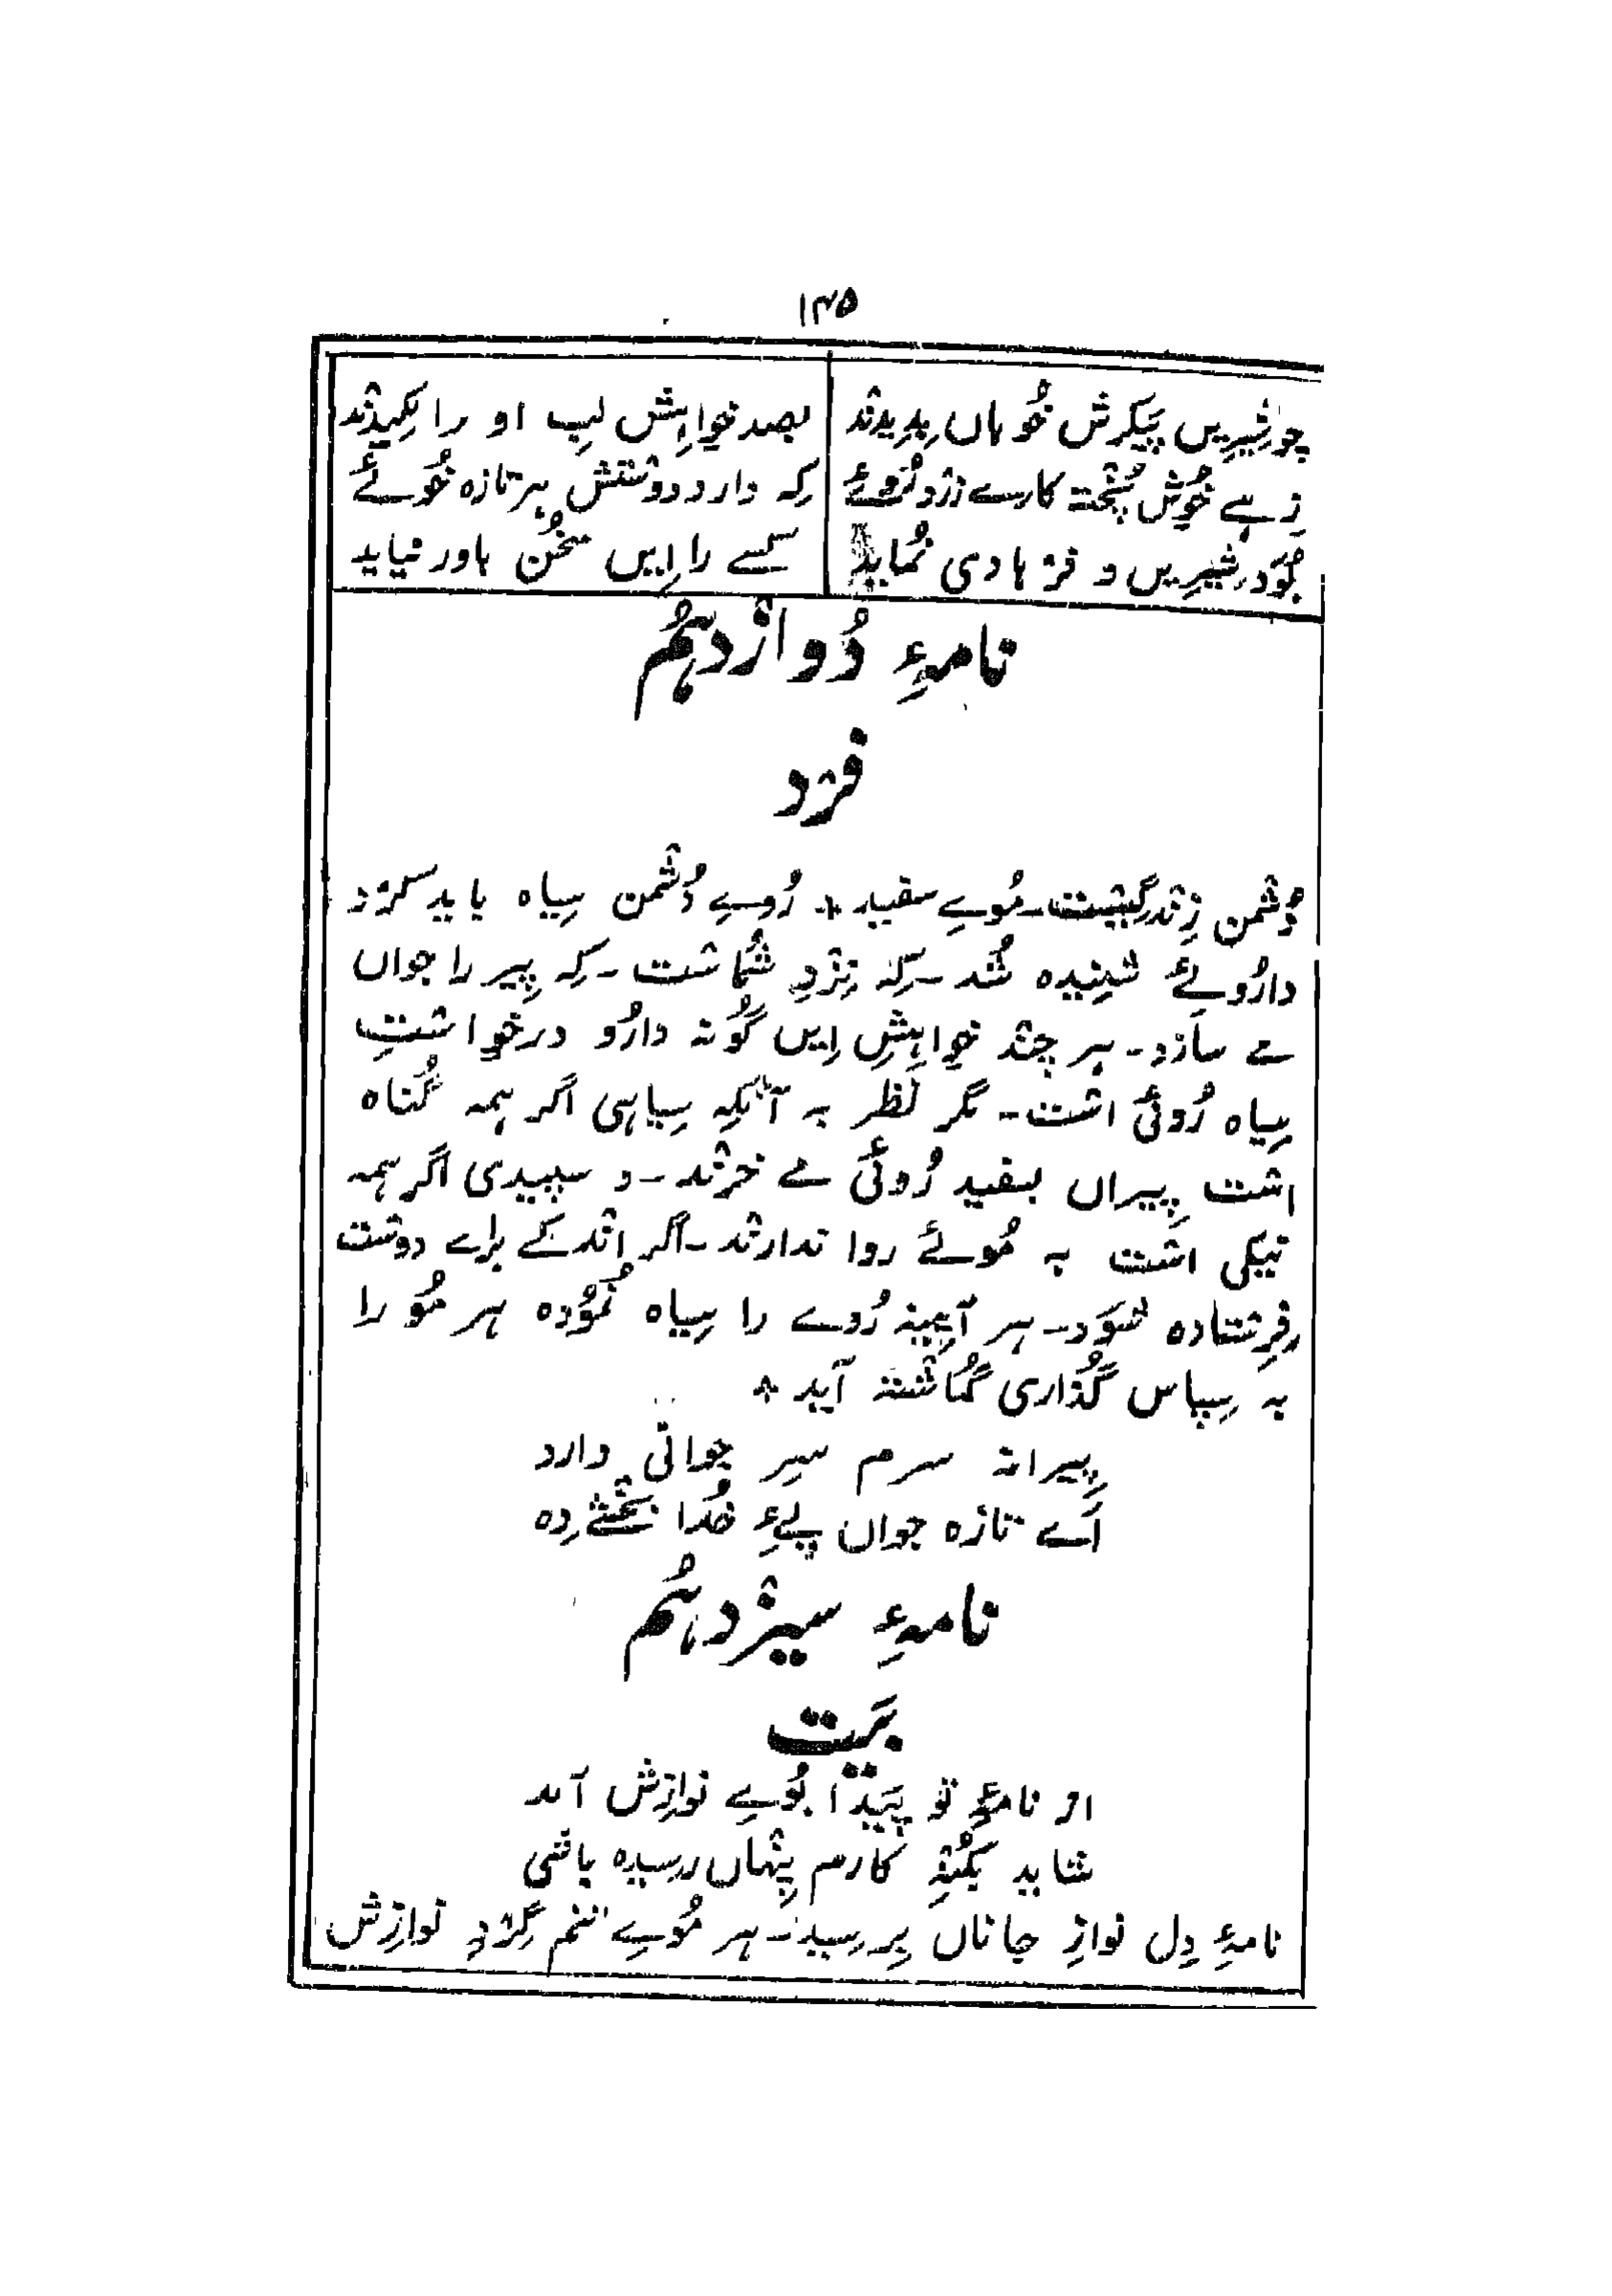 ۱۴۵
چو شیریں پیکرش خوباں بدیدند
بصد خواہش لبِ او را مکیدند
زہے خوش پختہ کارے زرد روئے
کہ دارد دوستش ہر تازہ خوئے
بود شیریں و فرہادی نماید
کسے را ایں سخن باور نیاید
نامۂ دُوازدہُم
فرد
دُشمن زندگیست۔ مُوےِ سفید * رُوےِ دُشمن سیاہ باید کرد
دارُوئے شنیدہ شد۔ کہ نزدِ شُماست۔ کہ پیر را جواں
مے سازد۔ ہر چند خواہشِ ایں گُونہ دارُو درخواستِ
سیاہ رُوئی است۔ مگر نظر بہ آنکہ سیاہی اگر ہمہ گُناہ
است پیراں بسفید رُوئی مے خرند۔ و سپیدی اگر ہمہ
نیکی است بہ مُوئے روا ندارند۔ اگر اندکے براے دوست
فرستادہ شود۔ ہر آیینہ رُوے را سیاہ نمُودہ ہر مُو را
بہ سپاس گُذاری گُماشتہ آید *
پیرانہ سرم سرِ جوانی دارد
اَے تازہ جواں پےءِ خُدا بخشے دہ
نامۂ سیزدہُم
بَیت
از نامۂ تو پَیدا بُوےِ نوازش آمد
شاید بکُنہِ کارم پنہاں رسیدہ باشی
نامۂ دِل نوازِ جاناں برسید۔ ہر مُوےِ تنم گِردِ نوازش